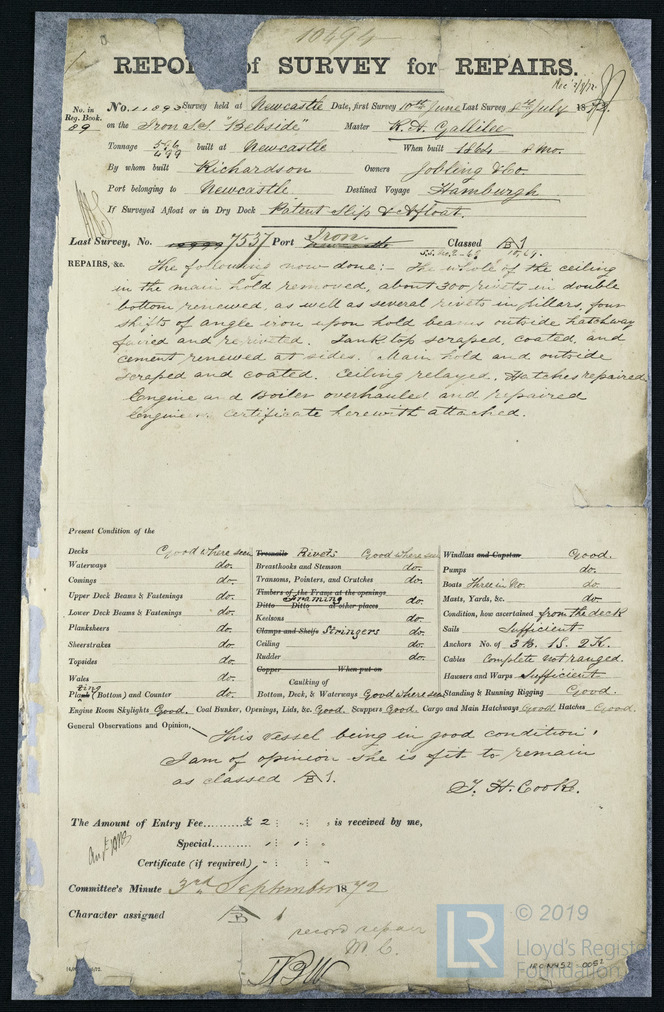 10494
REPO of SURVEY for REPAIRS.
Rec 2/9/72
No. in Reg. Book. 89
No. 11893 Survey held at Newcastle Date, first Survey 10th June Last Survey 8th July 1872
on the Iron S.S. "Bebside" Master K. A. Gallilee
Tonnage 546 499 built at Newcastle When built 1864 8 mo.
By whom built Richardson Owners Jobling & Co.
Port belonging to Newcastle Destined Voyage Hamburgh
If Surveyed Afloat or in Dry Dock Patent Slip & Afloat.
Last Survey, No. 7537 Port Iron. Newcastle Classed A 1
REPAIRS, &c. The following now done:- The whole of the ceiling
in the main hold removed, about 300 rivets in double
bottom renewed, as well as several rivets in pillars, four
shifts of angle iron upon hold beams outside hatchway
faired and rerivited. Tank top scraped, coated, and
cement renewed at sides. Main hold and outside
scraped and coated. Ceiling relayed. Hatches repaired
Engine and Boiler overhauled and repaired
Engineer's certificate herewith attached.
Present Condition of the
Decks Good where seen
Waterways do.
Comings do.
Upper Deck Beams & Fastenings do.
Lower Deck Beams & Fastenings do.
PlankSheers do.
Sheerstrakes do.
Topsides do.
Wales do.
Plating (Bottom) and Counter do.
Treenails Rivets Good where seen
Breasthooks and Stemson do.
Transoms, Pointers, and Crutches do.
Timbers of the Frame at the openings
Framing do.
Ditto Ditto at other places
Keelsons do.
Clamps and Shelfs Stringers do.
Ceiling do.
Rudder do.
Copper When put on
Caulking of
Bottom, Deck, & Waterways Good where seen
Windlass and Capstan Good.
Pumps do.
Boats Three in No. do.
Masts, Yards, &c. do.
Condition, how ascertained from the deck
Sails Sufficient
Anchors No. of 3 B. 1 S. 2 K.
Cables Complete not ranged.
Hawsers and Warps Sufficient
Standing & Running Rigging Good.
Engine Room Skylights Good. Coal Bunker, Openings, Lids, &c. Good. Scuppers Good. Cargo and Main Hatchways Good Hatches Good.
General Observations and Opinion,
This vessel being in good condition,
I am of opinion she is fit to remain
as classed A 1.
T. H. Cook.
The Amount of Entry Fee......... £ 2 : : , is received by me,
Special.........
Certificate (if required)
Committee's Minute 3rd September 1872
Character assigned A 1
record repair
M C.
© 2019
LR
Lloyd's Register
Foundation